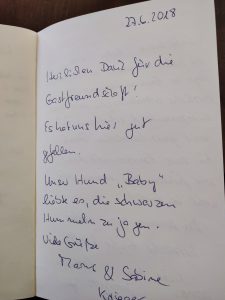 27.6.2018
Herzlichen Dank für die
Gastfreundschaft!
Es hat uns hier gut
gefallen.
Unser Hund „Baby"
liebte es, die schwarzen
Hummeln zu jagen.
Viele Grüße
& Sabine